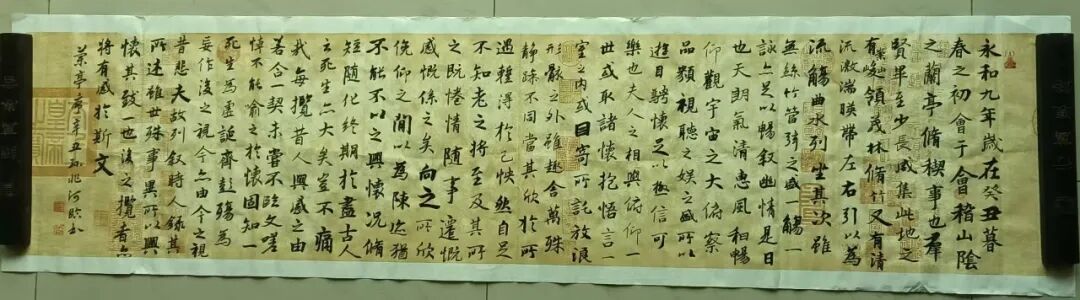 永和九年歲在癸丑暮
春之初會于會稽山陰
之蘭亭脩稧事也羣
賢畢至少長咸集此地
有峻領茂林脩竹又有清
流激湍暎帶左右引以為
流觴曲水列坐其次雖
無絲竹管弦之盛一觴一
詠亦足以暢叙幽情是日
也天朗氣清惠風和暢
仰觀宇宙之大俯察
品類視聽之娛之盛所以
遊目騁懷足以極信可
樂也夫人之相與俯仰一
世或取諸懷抱悟言一
室之內或因寄所託放浪
形骸之外雖趣舍萬殊
靜躁不同當其欣於所
遇輕得於己怏然自足
不知老之將至及其所
之既惓情隨事遷慨
感慨係之矣向之所欣
俛仰之閒以為陳迹猶
不能不以之興懷況脩
短隨化終期於盡古人
云死生亦大矣豈不痛
哉每攬昔人興感之由
若合一契未嘗不臨文嗟
悼不能喻之於懷固知一
死生為虛誕齊彭殤為
妄作後之視今亦由今之視
昔悲夫故列叙時人錄其
所述雖世殊事異所以興
懷其致一也後之攬者亦
將有感於斯文
蘭亭序辛丑